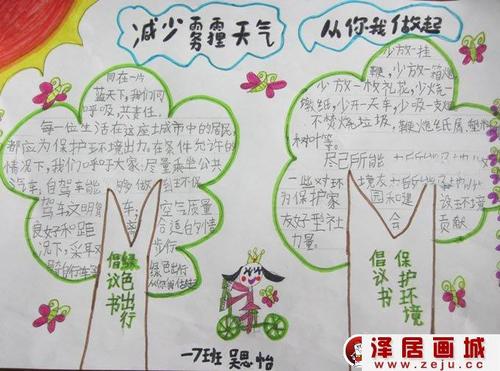 减少雾霾天气
从你我做起
同在一片
蓝天下,我们同
呼吸,共责任。
每一位生活在这座城市中的居民
都应为保护环境出力。在条件允许的
情况下,我们呼吁大家:尽量乘坐公共
汽车,自驾车能够做到环保
驾车文明
空气质量
良好和距
合适的情
况下,采取
步行
绿色出行
倡议书
绿色出行
少放一挂
鞭,少放一箱烟
少放一枚礼花,少烧一
堆纸,少开一天车,少吸一支烟
不焚烧垃圾,鞭炮纸屑,塑料
树叶等。
尽己所能
一些对环境友
为保护家园和建设环境
友好型社会贡献
力量
倡议书
保护环境
一7班 吴思怡
泽居画城
www.zeju.cc